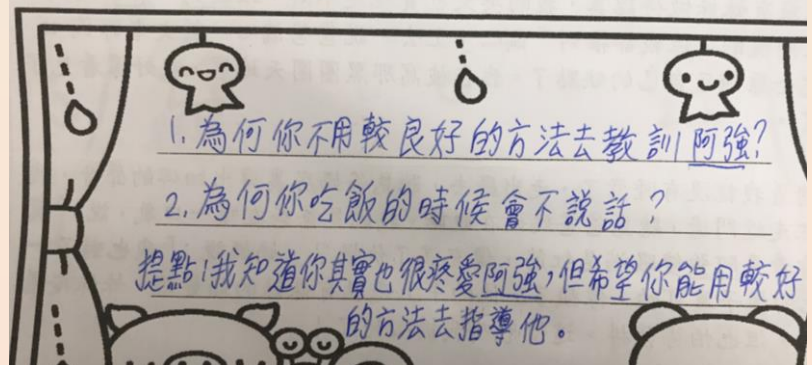 1. 為何你不用較良好的方法去教訓阿強?
2. 為何你吃飯的時候會不說話?
提點:我知道你其實也很疼愛阿強,但希望你能用較好
的方法去指導他。